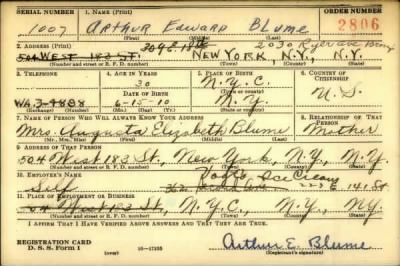 SERIAL NUMBER
1. NAME (Print)
ORDER NUMBER
1007
Arthur Edward Blume
2806
2. ADDRESS (Print)
309 E. 18th
2030 Ryer ave Bronx
504 WEST 183 ST. NEW YORK, N.Y., N.Y.
(Number and street or R. F. D. number) (Town) (County) (State)
3. TELEPHONE
4. AGE IN YEARS
5. PLACE OF BIRTH
6. COUNTRY OF CITIZENSHIP
30
N.Y.C.
DATE OF BIRTH
(Town or county)
WA. 3-4888
6-15-10
N.Y.
U.S.
(Mo.) (Day) (Yr.)
(State or country)
7. NAME OF PERSON WHO WILL ALWAYS KNOW YOUR ADDRESS
8. RELATIONSHIP OF THAT PERSON
Mrs. Augusta Elizabeth Blume
Mother
(Mr., Mrs., Miss) (First) (Middle) (Last)
9. ADDRESS OF THAT PERSON
504 West 183 St., New York, N.Y., N.Y.
(Number and street or R. F. D. number) (Town) (County) (State)
10. EMPLOYER'S NAME
Ice Cream
Self
222 E. 141 St
11. PLACE OF EMPLOYMENT OR BUSINESS
West 183 St., N.Y.C., N.Y., NY.
(Number and street or R. F. D. number) (Town) (County) (State)
I AFFIRM THAT I HAVE VERIFIED ABOVE ANSWERS AND THAT THEY ARE TRUE.
REGISTRATION CARD
D. S. S. Form 1
(over)
16-17105
Arthur E. Blume
(Registrant's signature)